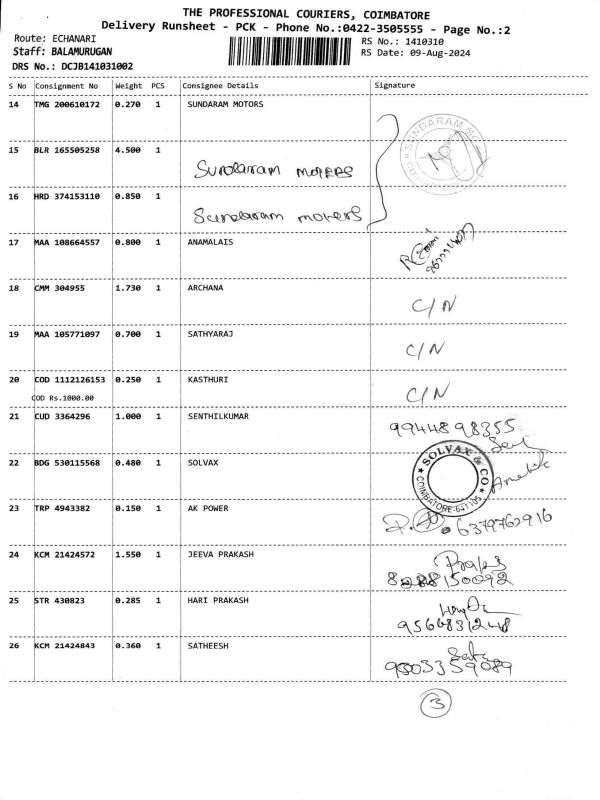 THE PROFESSIONAL COURIERS, COIMBATORE
Delivery Runsheet - PCK - Phone No.:0422-3505555 - Page No.:2
Route: ECHANARI
RS No.: 1410310
Staff: BALAMURUGAN
RS Date: 09-Aug-2024
DRS No.: DCJB141031002
S No Consignment No Weight PCS Consignee Details Signature
14 TMG 200610172 0.270 1 SUNDARAM MOTORS
SUNDARAM MO
15 BLR 165505258 4.500 1
Sundaram motors
16 HRD 374153110 0.850 1
Sundaram motors
17 MAA 108664557 0.800 1 ANAMALAIS
18 CMM 304955 1.730 1 ARCHANA
C/N
19 MAA 105771097 0.700 1 SATHYARAJ
C/N
20 COD 1112126153 0.250 1 KASTHURI
C/N
COD Rs.1000.00
21 CUD 3364296 1.000 1 SENTHILKUMAR
9944898355
22 BDG 530115568 0.480 1 SOLVAX
SOLVAX & CO
COIMBATORE-641105
23 TRP 4943382 0.150 1 AK POWER
6379762916
24 KCM 21424572 1.550 1 JEEVA PRAKASH
25 STR 430823 0.285 1 HARI PRAKASH
9566831248
26 KCM 21424843 0.360 1 SATHEESH
9503359089
3